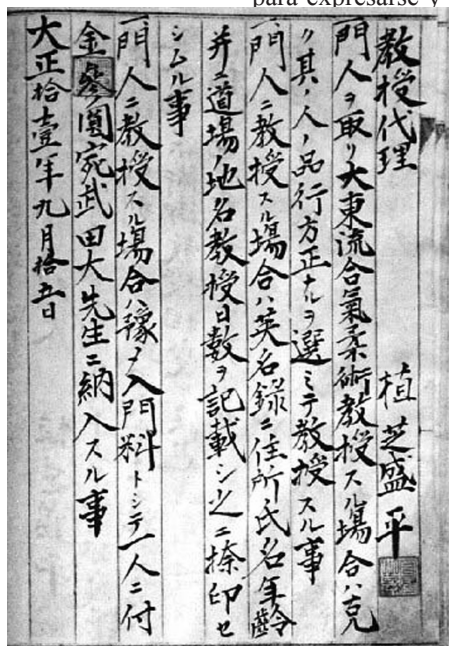 para expresarse y
教授代理 植芝盛平
一、門人ヲ取リ大東流合氣柔術教授スル場合ハ克
ク其ノ人ノ品行方正ナルヲ選ミテ教授スル事
一、門人ニ教授スル場合ハ英名録ニ住所氏名年齡
并ニ道場ノ地名教授日數ヲ記載シ之ニ捺印セ
シムル事
一、門人ニ教授スル場合ハ豫メ入門料トシテ一人ニ付
金參圓宛武田大先生ニ納入スル事
大正拾壹年九月拾五日